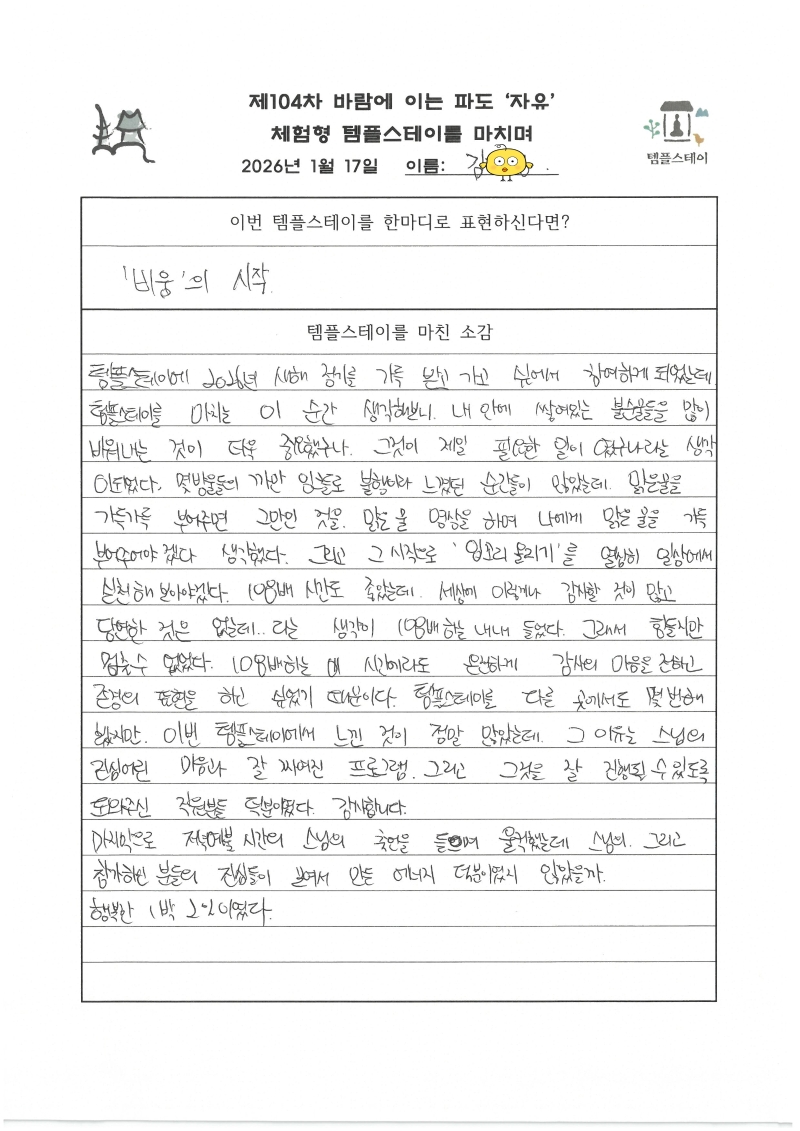 제104차 바람에 이는 파도 '자유'
체험형 템플스테이를 마치며
2026년 1월 17일 이름: 김
템플스테이
이번 템플스테이를 한마디로 표현하신다면?
'비움'의 시작
템플스테이를 마친 소감
템플스테이에 2026년 새해 정기를 가득 받고 가고 싶어서 참여하게 되었는데,
템플스테이를 마치는 이 순간 생각해보니. 내 안에 쌓여있는 불순물들을 많이
비워내는 것이 더욱 중요했구나. 그것이 제일 필요한 일이 였구나라는 생각
이되었다. 몇방울들의 까만 잉크들로 불행이라 느꼈던 순간들이 많았는데. 맑은물을
가득가득 부어주면 그만인 것을. 맑은 물 명상을 하며 나에게 맑은 물을 가득
부어주어야 겠다 생각했다. 그리고 그 시작으로 '입꼬리 올리기'를 열심히 일상에서
실천해 보아야겠다. 108배 시간도 좋았는데. 세상에 이렇게나 감사할 것이 많고
당연한 것은 없는데.. 라는 생각이 108배 하는 내내 들었다. 그래서 힘들지만
멈출수 없었다. 108배하는 이 시간에라도 온전하게 감사의 마음을 전하고
존경의 표현을 하고 싶었기 때문이다. 템플스테이를 다른 곳에서도 몇 번해
봤지만. 이번 템플스테이에서 느낀 것이 정말 많았는데. 그 이유는 스님의
진심어린 마음과 잘 짜여진 프로그램. 그리고 그것을 잘 진행될 수 있도록
도와주신 직원분들 덕분이였다. 감사합니다.
마지막으로 저녁예불 시간의 스님의 축언을 들으며 울컥했는데 스님의. 그리고
참가하신 분들의 진심들이 모여서 만든 에너지 덕분이였지 않았을까.
행복한 1박 2일이였다.